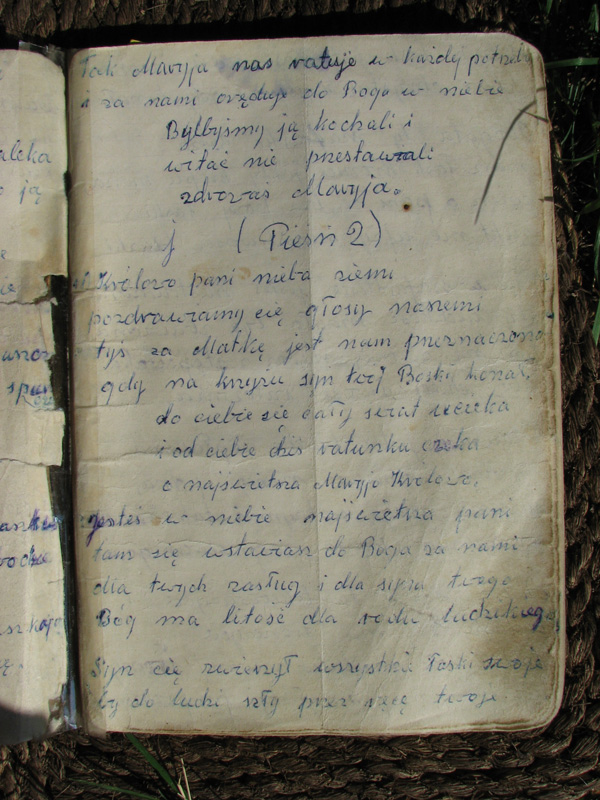 Tak Maryja nas ratuje w każdej potrzebie
i za nami oręduje do Boga w niebie
Byłbyśmy ją kochali i
witać nie przestawali
zdrozaś Maryja.
(Pieśń 2)
Królowo pani nieba ziemi
pozdrawiamy cię głosy naszemi
tyś za Matkę jest nam przeznaczona
gdy na krzyżu syn twój Boski konał,
do ciebie się cały serat ucieka
i od ciebie dziś ratunku czeka
o najświetsza Maryjo Królowo,
jesteś w niebie najświetrza pani
tam się wstawiasz do Boga za nami
dla twych zasług i dla syna twego
Bóg ma litość dla rodu ludzkiego
Syn cię zwieszył wszystkie łaski swoje
by do ludzi szły przez ręce twoje
alcka
ją
wodze